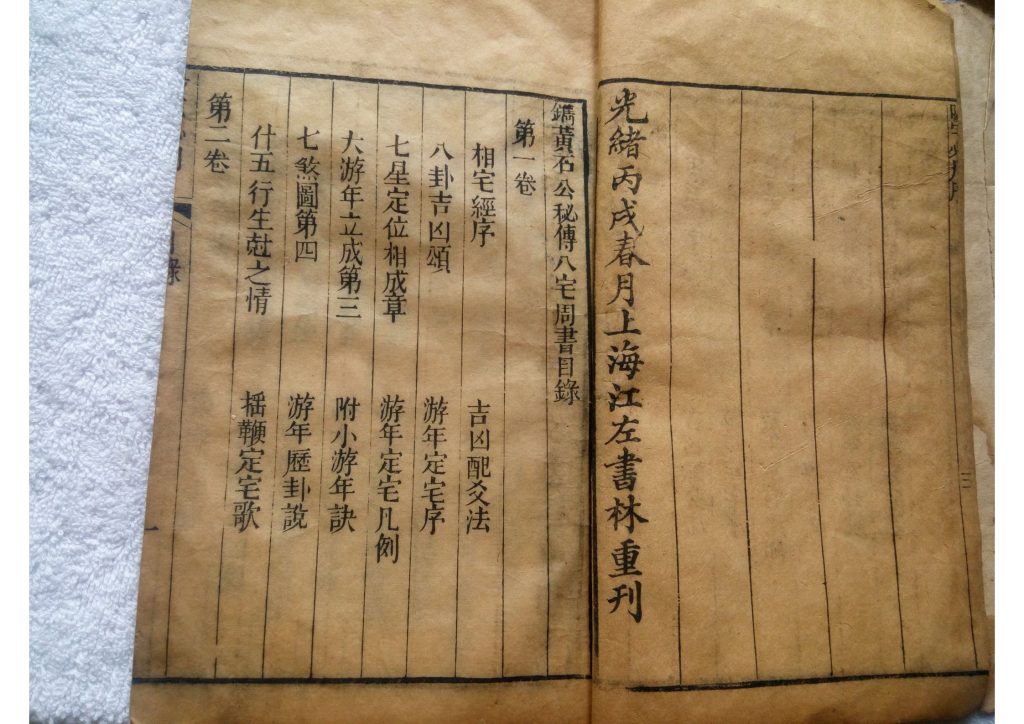 光緒丙戌春月上海江左書林重刊
鐫黃石公秘傳八宅周書目錄
第一卷
相宅經序 吉凶配爻法
八卦吉凶頌 游年定宅序
七星定位相成章 游年定宅凡例
大游年立成第三 附小游年訣
七煞圖第四 游年歷卦說
什五行生尅之情 揺鞭定宅歌
第二卷
目錄
一